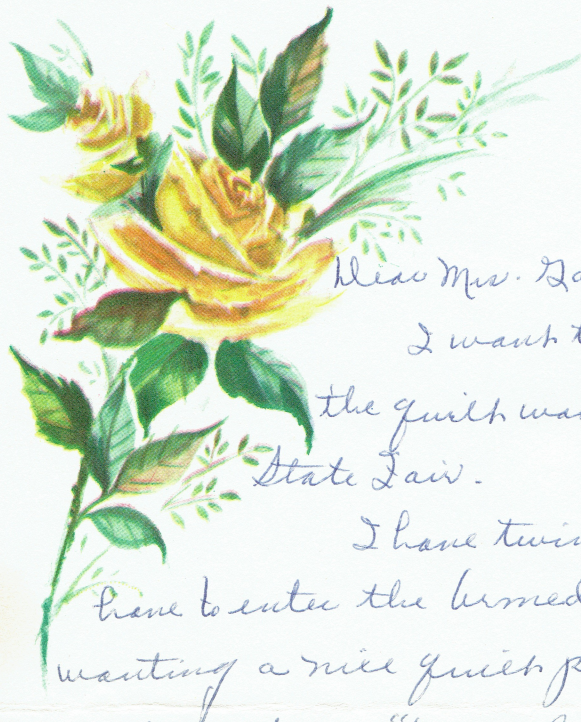 Dear Mrs. Ga
I want t
the quilt was
State Fair.
I have twin
have to enter the Armed
wanting a nice quilt p